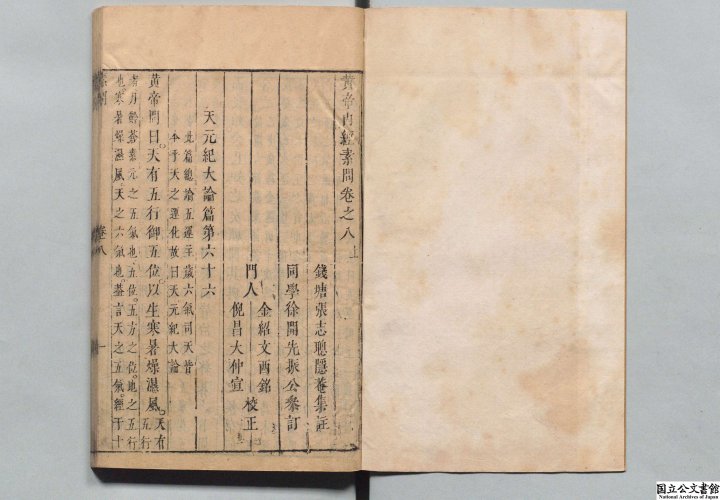 黃帝內經素問卷之八上
錢塘張志聰隱菴集註
同學徐開先振公參訂
金紹文酉銘
門人　校正
倪昌大仲宣
天元紀大論篇第六十六
此篇總論五運主歲六氣司天皆
本乎天之運化故曰天元紀大論
黃帝問曰天有五行御五位以生寒暑燥濕風
天有五行
者丹黅蒼素元之五氣也五位五方之位地之五行
也寒暑燥濕風天之六氣也蓋言天之五氣經于十
素問
卷八
一
国立公文書館
National Archives of Japan